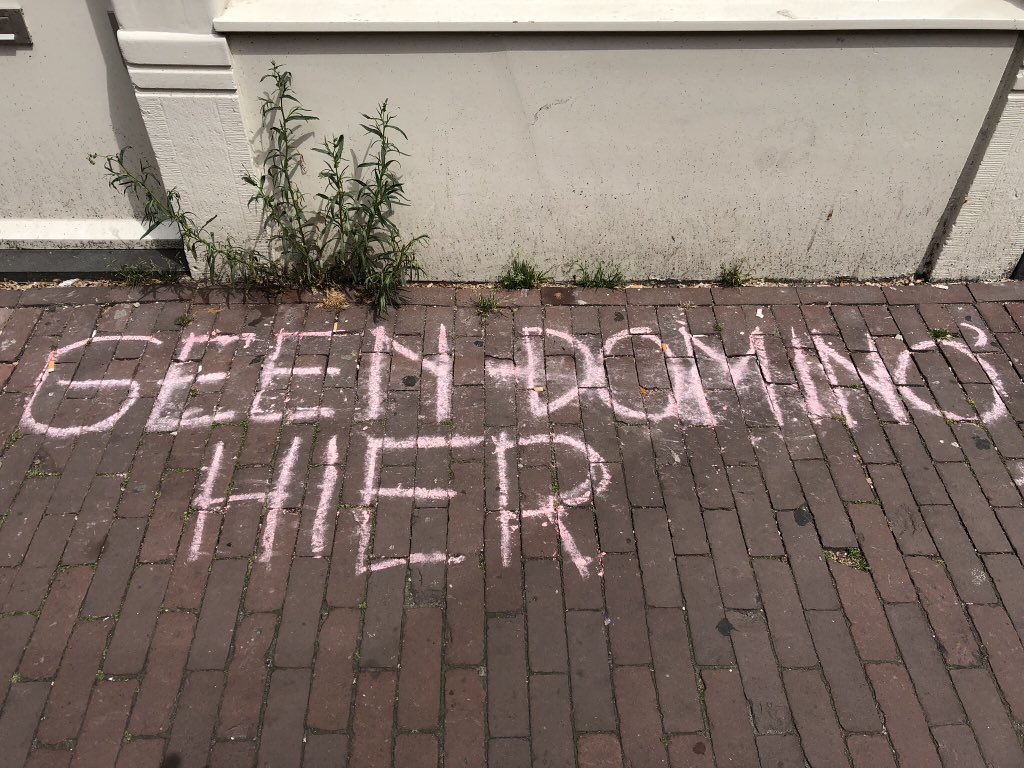 GEEN-DOMINO'S
HIER